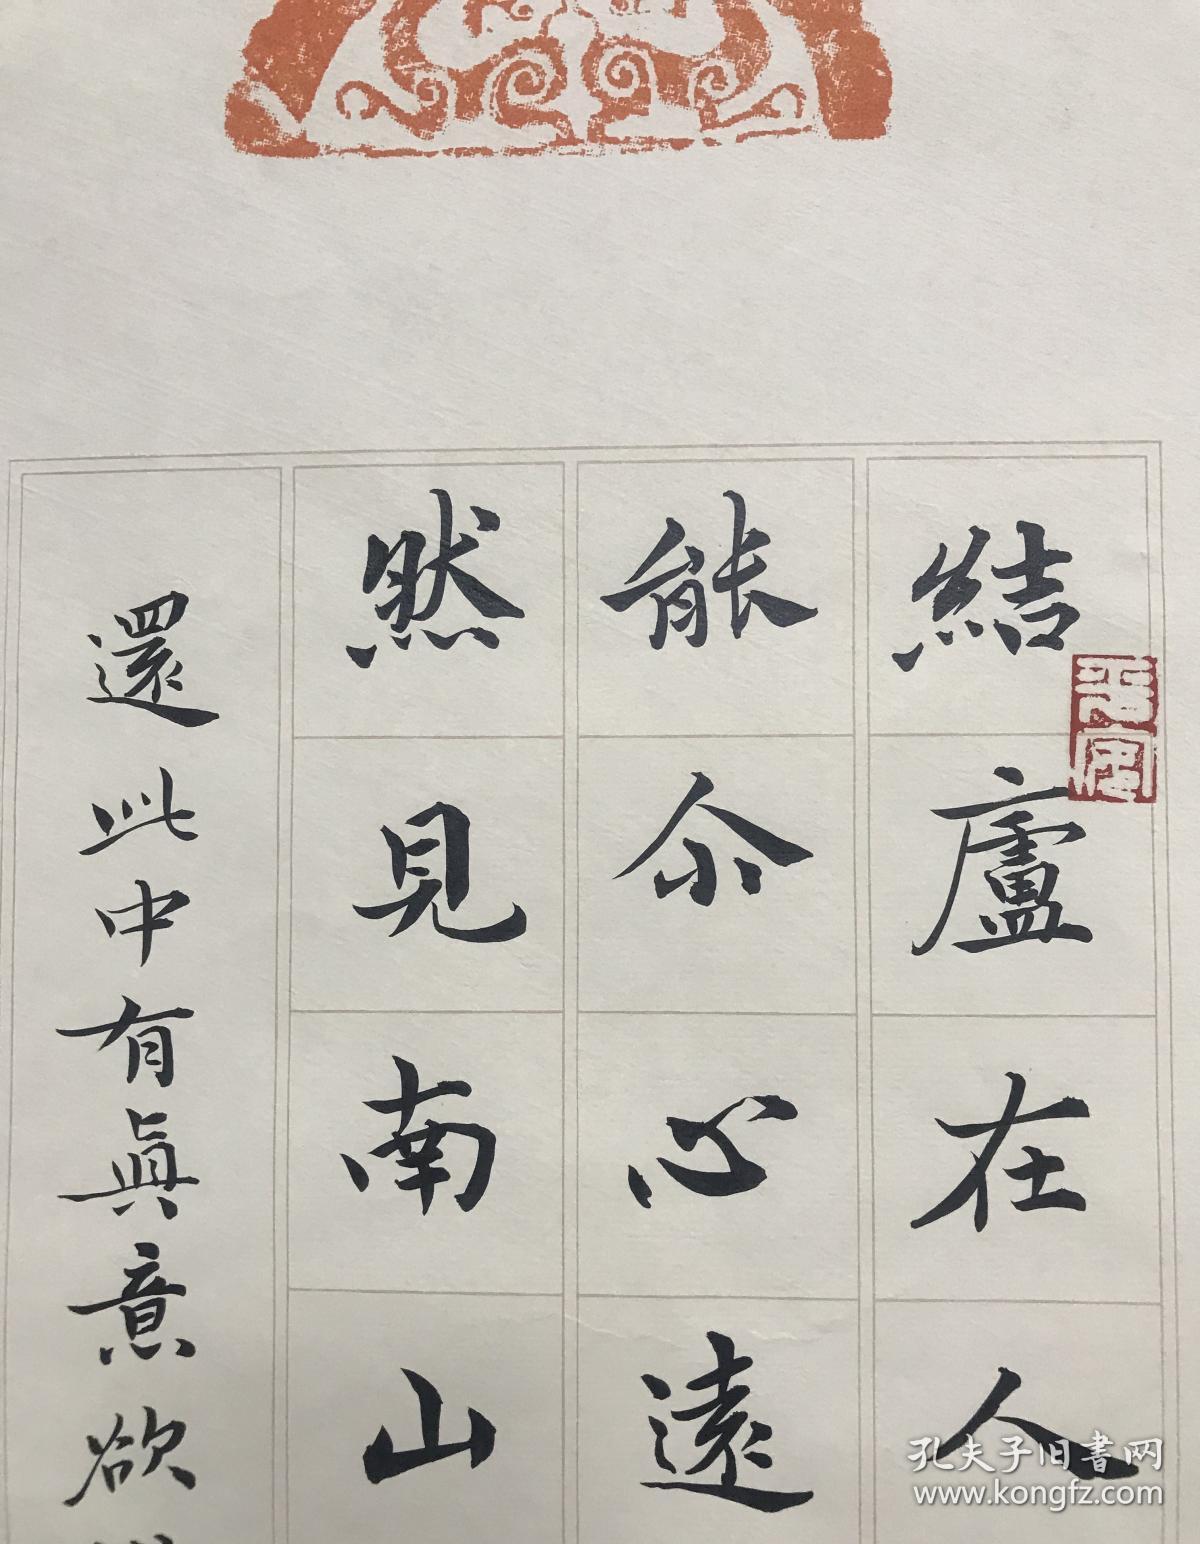 結廬在人
能尒心遠
然見南山
還此中有真意欲
孔夫子旧書网
www.kongfz.com